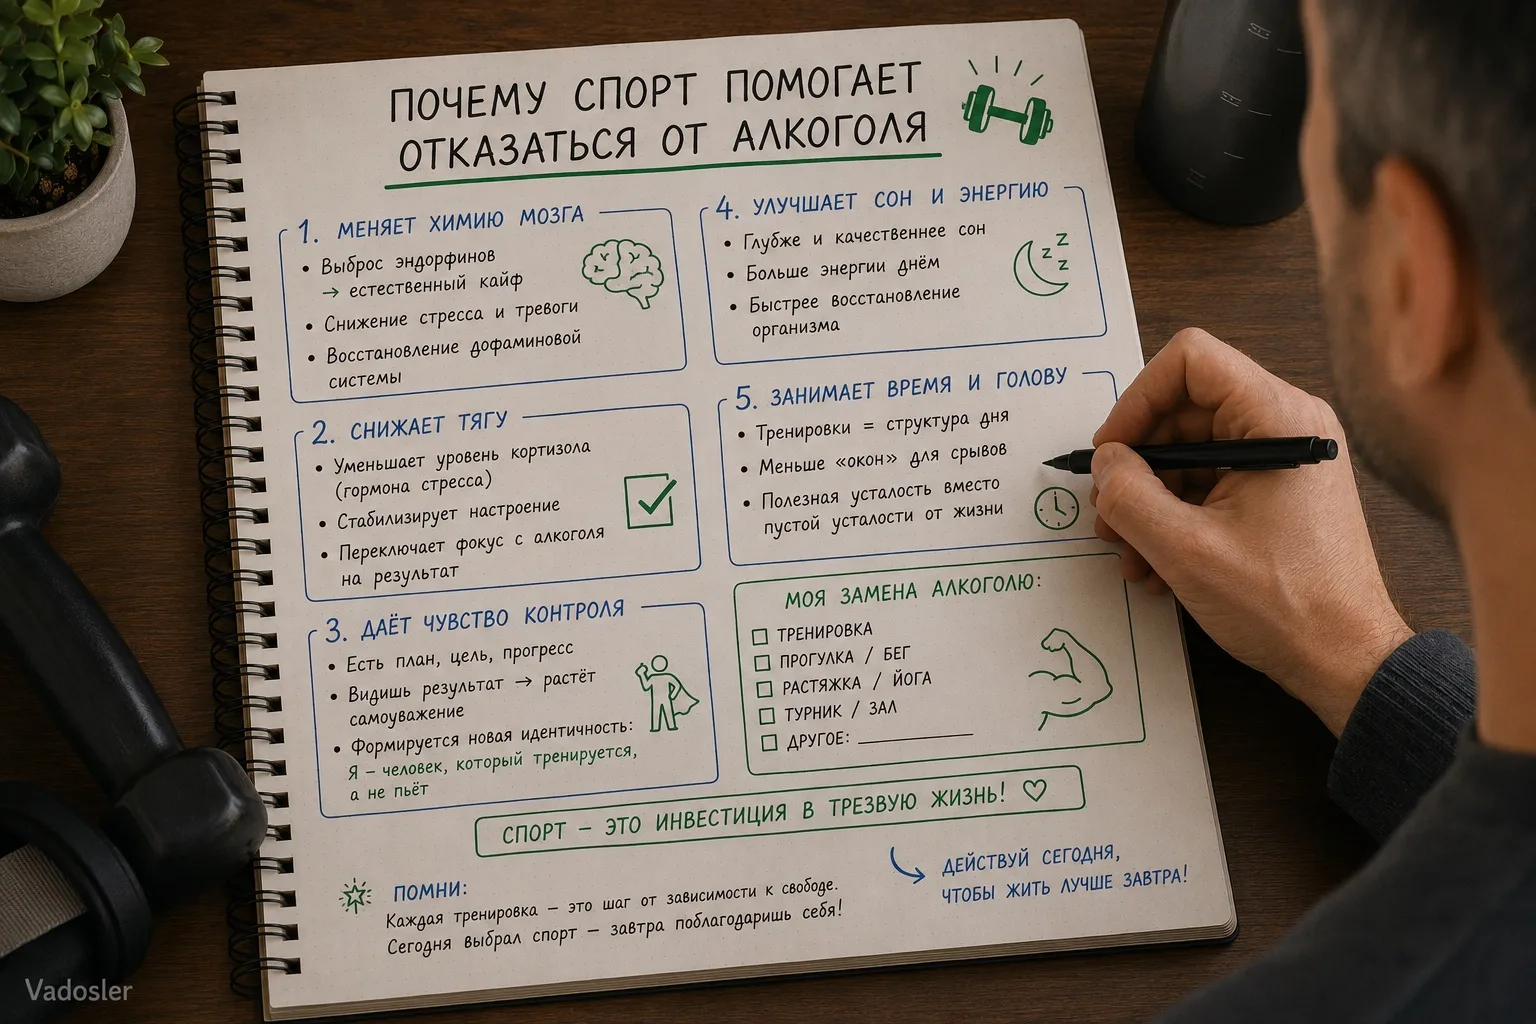 ПОЧЕМУ СПОРТ ПОМОГАЕТ
ОТКАЗАТЬСЯ ОТ АЛКОГОЛЯ
1. МЕНЯЕТ ХИМИЮ МОЗГА
• Выброс эндорфинов
→ естественный кайф
• Снижение стресса и тревоги
• Восстановление дофаминовой
системы
2. СНИЖАЕТ ТЯГУ
• Уменьшает уровень кортизола
(гормона стресса)
• Стабилизирует настроение
• Переключает фокус с алкоголя
на результат
3. ДАЁТ ЧУВСТВО КОНТРОЛЯ
• Есть план, цель, прогресс
• Видишь результат → растёт
самоуважение
• Формируется новая идентичность:
Я – человек, который тренируется,
а не пьёт
4. УЛУЧШАЕТ СОН И ЭНЕРГИЮ
• Глубже и качественнее сон
• Больше энергии днём
• Быстрее восстановление
организма
5. ЗАНИМАЕТ ВРЕМЯ И ГОЛОВУ
• Тренировки = структура дня
• Меньше «окон» для срывов
• Полезная усталость вместо
пустой усталости от жизни
МОЯ ЗАМЕНА АЛКОГОЛЮ:
☐ ТРЕНИРОВКА
☐ ПРОГУЛКА / БЕГ
☐ РАСТЯЖКА / ЙОГА
☐ ТУРНИК / ЗАЛ
☐ ДРУГОЕ: __________
СПОРТ – ЭТО ИНВЕСТИЦИЯ В ТРЕЗВУЮ ЖИЗНЬ! ♡
ПОМНИ:
Каждая тренировка – это шаг от зависимости к свободе.
Сегодня выбрал спорт – завтра поблагодаришь себя!
ДЕЙСТВУЙ СЕГОДНЯ,
ЧТОБЫ ЖИТЬ ЛУЧШЕ ЗАВТРА!
z z z
Vadosler